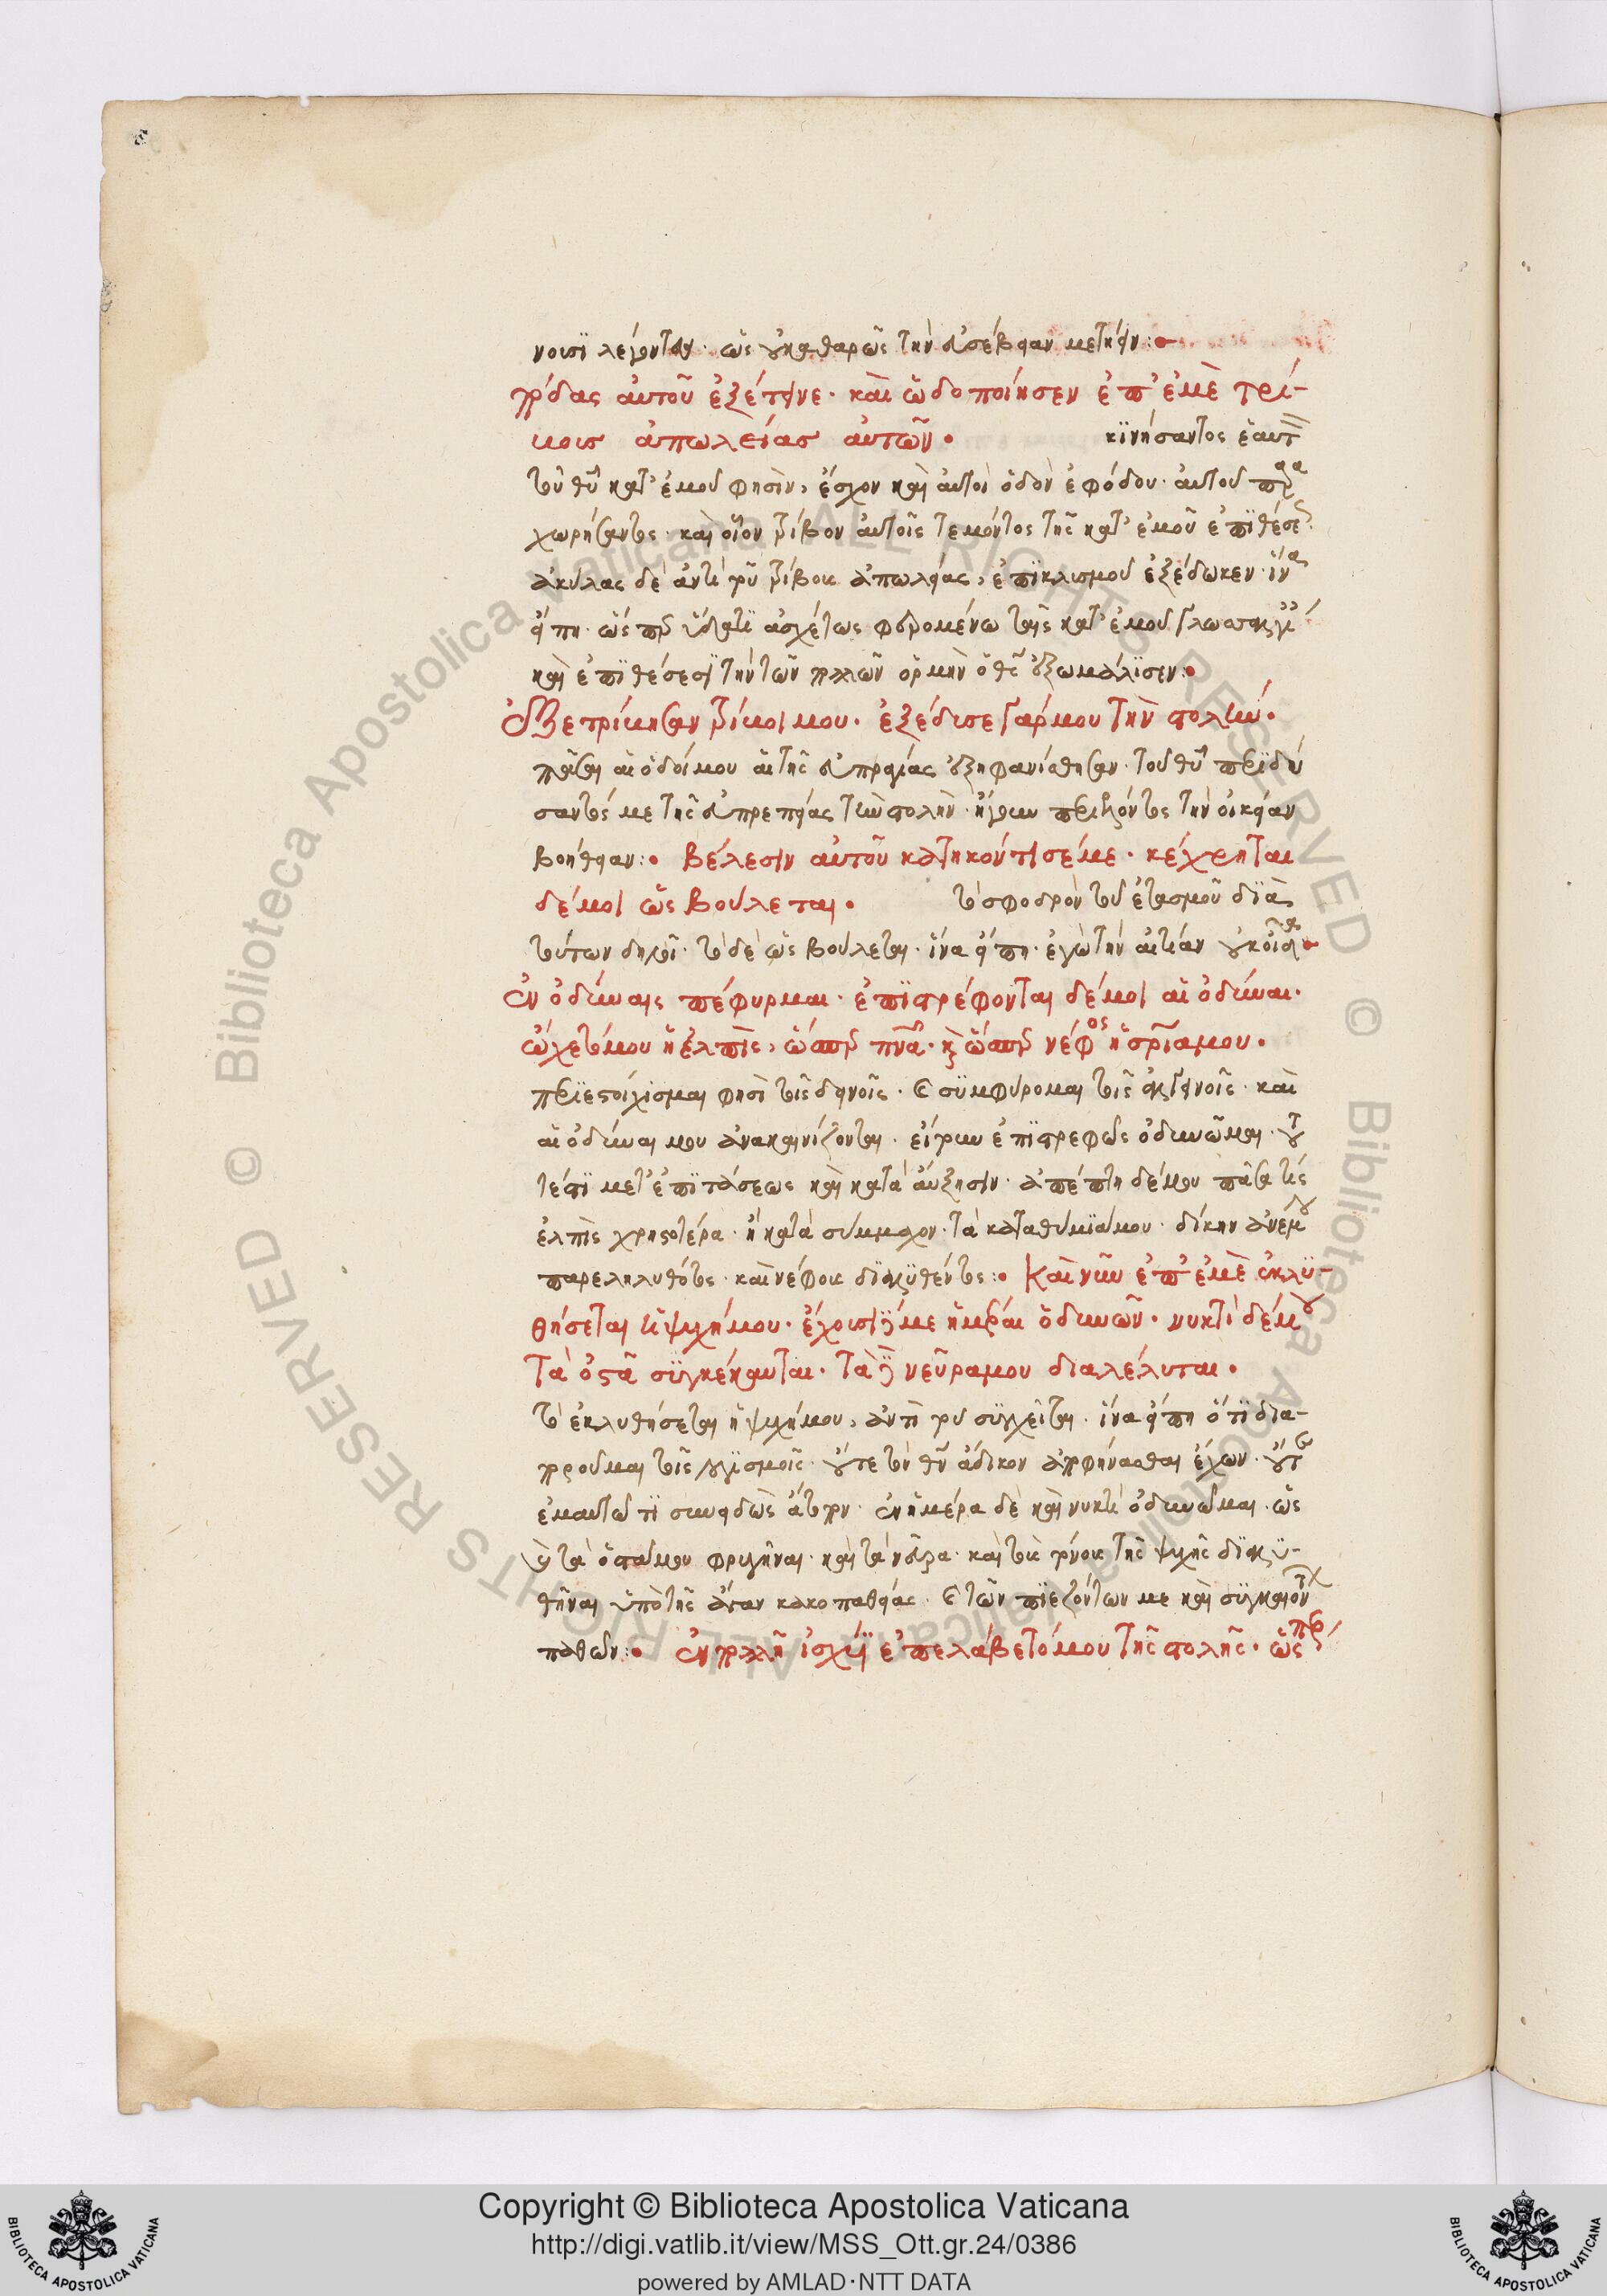 νουσι λέγονται· ὡς οὐ καθαρῶς τὴν εὐσέβειαν μετῄειν:•
τρίβας αὐτοῦ ἐξέτεινε· καὶ ὡδοποίησεν ἐπ' ἐμὲ τρί-
βοις ἀπωλείας αὐτῶν• κϊνήσαντος ἑαυτ
τοῦ θυ κατ' ἐμοῦ φησὶν, ἔσχον καὶ αὐτοὶ ὁδὸν ἐφόδου· αὐτοῦ παρα
χωρήσαντος· καὶ οἷον τρίβον αὐτοῖς τεμόντος τῆς κατ' ἐμοῦ ἐπϊθέσε
ἀκύλας δὲ ἀντὶ τοῦ τρίβοις ἀπωλείας, ἐπϊκλυσμοῦ ἐξέδωκεν· ἵνα
εἴπη· ὥσπερ ὕδατϊ ἀσχέτως φερομένω ταῖς κατ' ἐμοῦ
καὶ ἐπϊθέσεσι τὴν τῶν πολλῶν ὁρμὴν ὁ θς ἐξωμάλϊσεν:•
Ἐξετρίβησαν τρίβοι μου· ἐξέδυσε γάρ μου τὴν στολήν·
πᾶσαι αἱ ὁδοί μου αἱ τῆς εὐπραγίας ἐξηφανίσθησαν· τοῦ θυ περιδύ
σαντός με τῆς εὐπρεπείας τὴν στολὴν· ἤγουν περιελόντος τὴν οἰκείαν
βοήθειαν:• Βέλεσιν αὐτοῦ κατηκόντισέ με· κέχρηται
δέ μοι ὡς βούλεται• τὸ σφοδρὸν τοῦ ἐτασμοῦ διὰ
τούτων δηλοῖ· τὸ δὲ ὡς βούλεται· ἵνα εἴπη· ἐγὼ τὴν αἰτίαν οὐκ οἶδα•
Ἐν ὀδύναις πέφυρμαι· ἐπϊστρέφονται δέ μοι αἱ ὀδύναι·
ὤχετό μου ἡ ἐλπὶς, ὥσπερ πνα· κ ὥσπερ νέφος ἡ σρία μου·
περιεστοίχισμαι φησὶ τοῖς δεινοῖς· κ συμφύρομαι τοῖς ἐκείνοις· καὶ
αἱ ὀδύναι μου ἀνακαινίζονται· εἴτουν ἐπϊστρεφῶς ὀδυνῶμαι· του
τέστϊ μετ' ἐπϊτάσεως καὶ κατὰ αὔξησιν· ἀπέπτη δέ μου πᾶσα τίς
ἐλπὶς χρηστοτέρα· ἢ κατὰ σύμμαχον· τὰ καταθύμϊα μου· δίκην ἀνέμου
παρεληλυθότος· καὶ νέφους δϊαλυθέντος:• Καὶ νῦν ἐπ' ἐμὲ ἐκλυ-
θήσεται ἡ ψυχή μου· ἔχουσι με ἡμέραι ὀδυνῶν· νυκτὶ δέ μου
Τὰ ὀστᾶ συγκέκαυται· τὰ δὲ νεῦρα μου διαλέλυται•
τὸ ἐκλυθήσεται ἡ ψυχή μου, ἀντὶ τοῦ συγχεῖται· ἵνα εἴπη ὅτϊ δια-
ποροῦμαι τοῖς λογϊσμοῖς· οὔτε τὸν θν ἄδικον ἀποφήνασθαι ἔχων· οὔτε
ἐμαυτῶ τϊ συνειδὼς ἄτοπον· ἐν ἡμέρα δὲ καὶ νυκτὶ ὀδυνῶμαι· ὡς
κ τὰ ὀστᾶ μου φρυγῆναι· καὶ τὰ νεῦρα· καὶ τοὺς τόνους τῆς ψυχῆς δϊαλυ-
θῆναι ὑπὸ τῆς ἄγαν κακοπαθείας· κ τῶν πϊεζόντων με καὶ συγκαιόντων
παθῶν:• Ἐν πολλῆ ἰσχύϊ ἐπελάβετό μου τῆς στολῆς· ὥσπερ
Copyright © Biblioteca Apostolica Vaticana
http://digi.vatlib.it/view/MSS_Ott.gr.24/0386
powered by AMLAD·NTT DATA